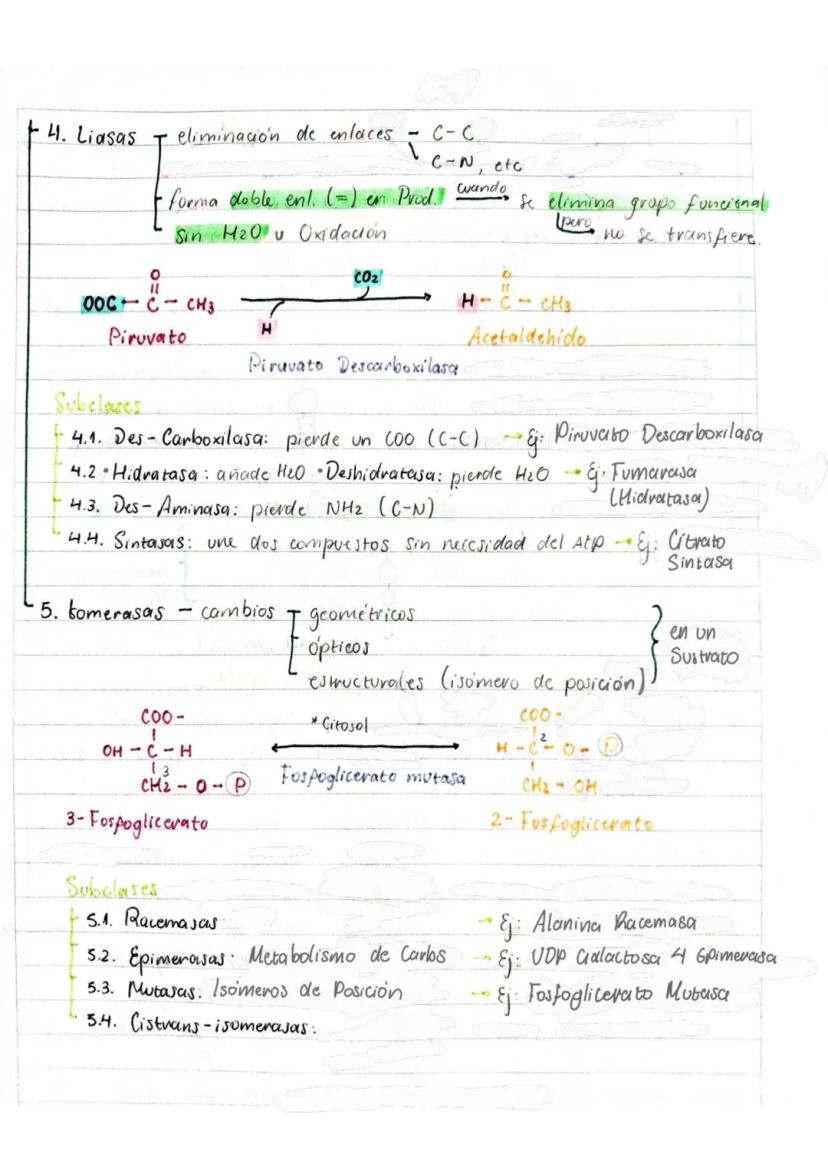 4. Liasas eliminación de enlaces - C-C
C-N, etc
forma doble enl. (=) en Prod. cuando se elimina grupo funcional
sin H2O u Oxidación pero no se transfiere.
O CO2 O
OOC - C - CH3 H - C - CH3
Piruvato H Acetaldehido
Piruvato Descarboxilasa
Subclases
4.1. Des-Carboxilasa: pierde un COO (C-C) → Ej: Piruvato Descarboxilasa
4.2 • Hidratasa: añade H2O • Deshidratasa: pierde H2O → Ej. Fumarasa
(Hidratasa)
4.3. Des-Aminasa: pierde NH2 (C-N)
4.4. Sintasas: une dos compuestos sin necesidad del ATP → Ej: Citrato
Sintasa
5. Isomerasas - cambios geométricos
ópticos
estructurales (isómero de posición)
en un
Sustrato
COO- * Citosol COO-
OH - C - H H - C2 - O - P
3 CH2 - O - P Fosfoglicerato mutasa CH2 - OH
3-Fosfoglicerato 2-Fosfoglicerato
Subclases
5.1. Racemasas → Ej: Alanina Racemasa
5.2. Epimerasas: Metabolismo de Carbs → Ej: UDP Galactosa 4 Epimerasa
5.3. Mutasas: Isómeros de Posición → Ej: Fosfoglicerato Mutasa
5.4. Cistrans-isomerasas: